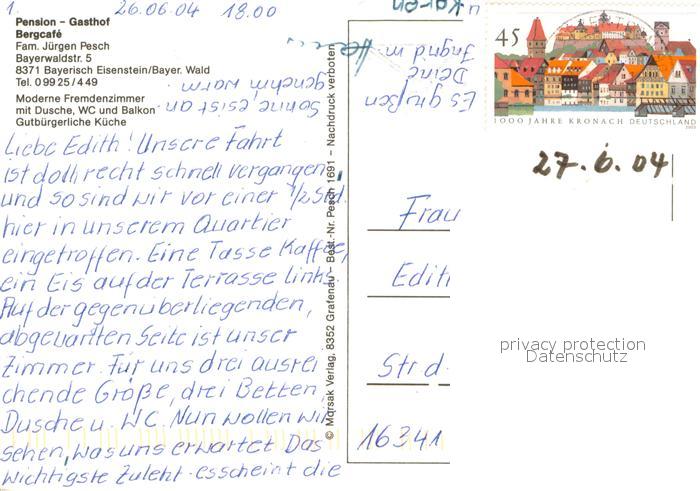 1. 26.06.04 18.00
Pension – Gasthof
Bergcafé
Fam. Jürgen Pesch
Bayerwaldstr. 5
8371 Bayerisch Eisenstein/Bayer. Wald
Tel. 0 99 25 / 4 49
Moderne Fremdenzimmer
mit Dusche, WC und Balkon
Gutbürgerliche Küche
Liebe Edith! Unsere Fahrt
ist doll recht schnell vergangen,
und so sind wir vor einer 1/2 Std.
hier in unserem Quartier
eingetroffen. Eine Tasse Kaffee,
ein Eis auf der Terrasse links.
Auf der gegenüberliegenden,
abgewandten Seite ist unser
Zimmer. Für uns drei ausrei
chende Größe, drei Betten,
Dusche u. WC. Nun wollen wir
sehen, was uns erwartet. Das
wichtigste zuletzt - es scheint die
Sonne es ist an-
genehm warm.
Es grüßen
Deine
Ingrid
u Karen
© Morsak Verlag, 8352 Grafenau – Best.-Nr. Pesch 1691 – Nachdruck verboten
45
1000 JAHRE KRONACH DEUTSCHLAND
27.6.04
Frau
Edith
Str d.
16341
privacy protection
Datenschutz